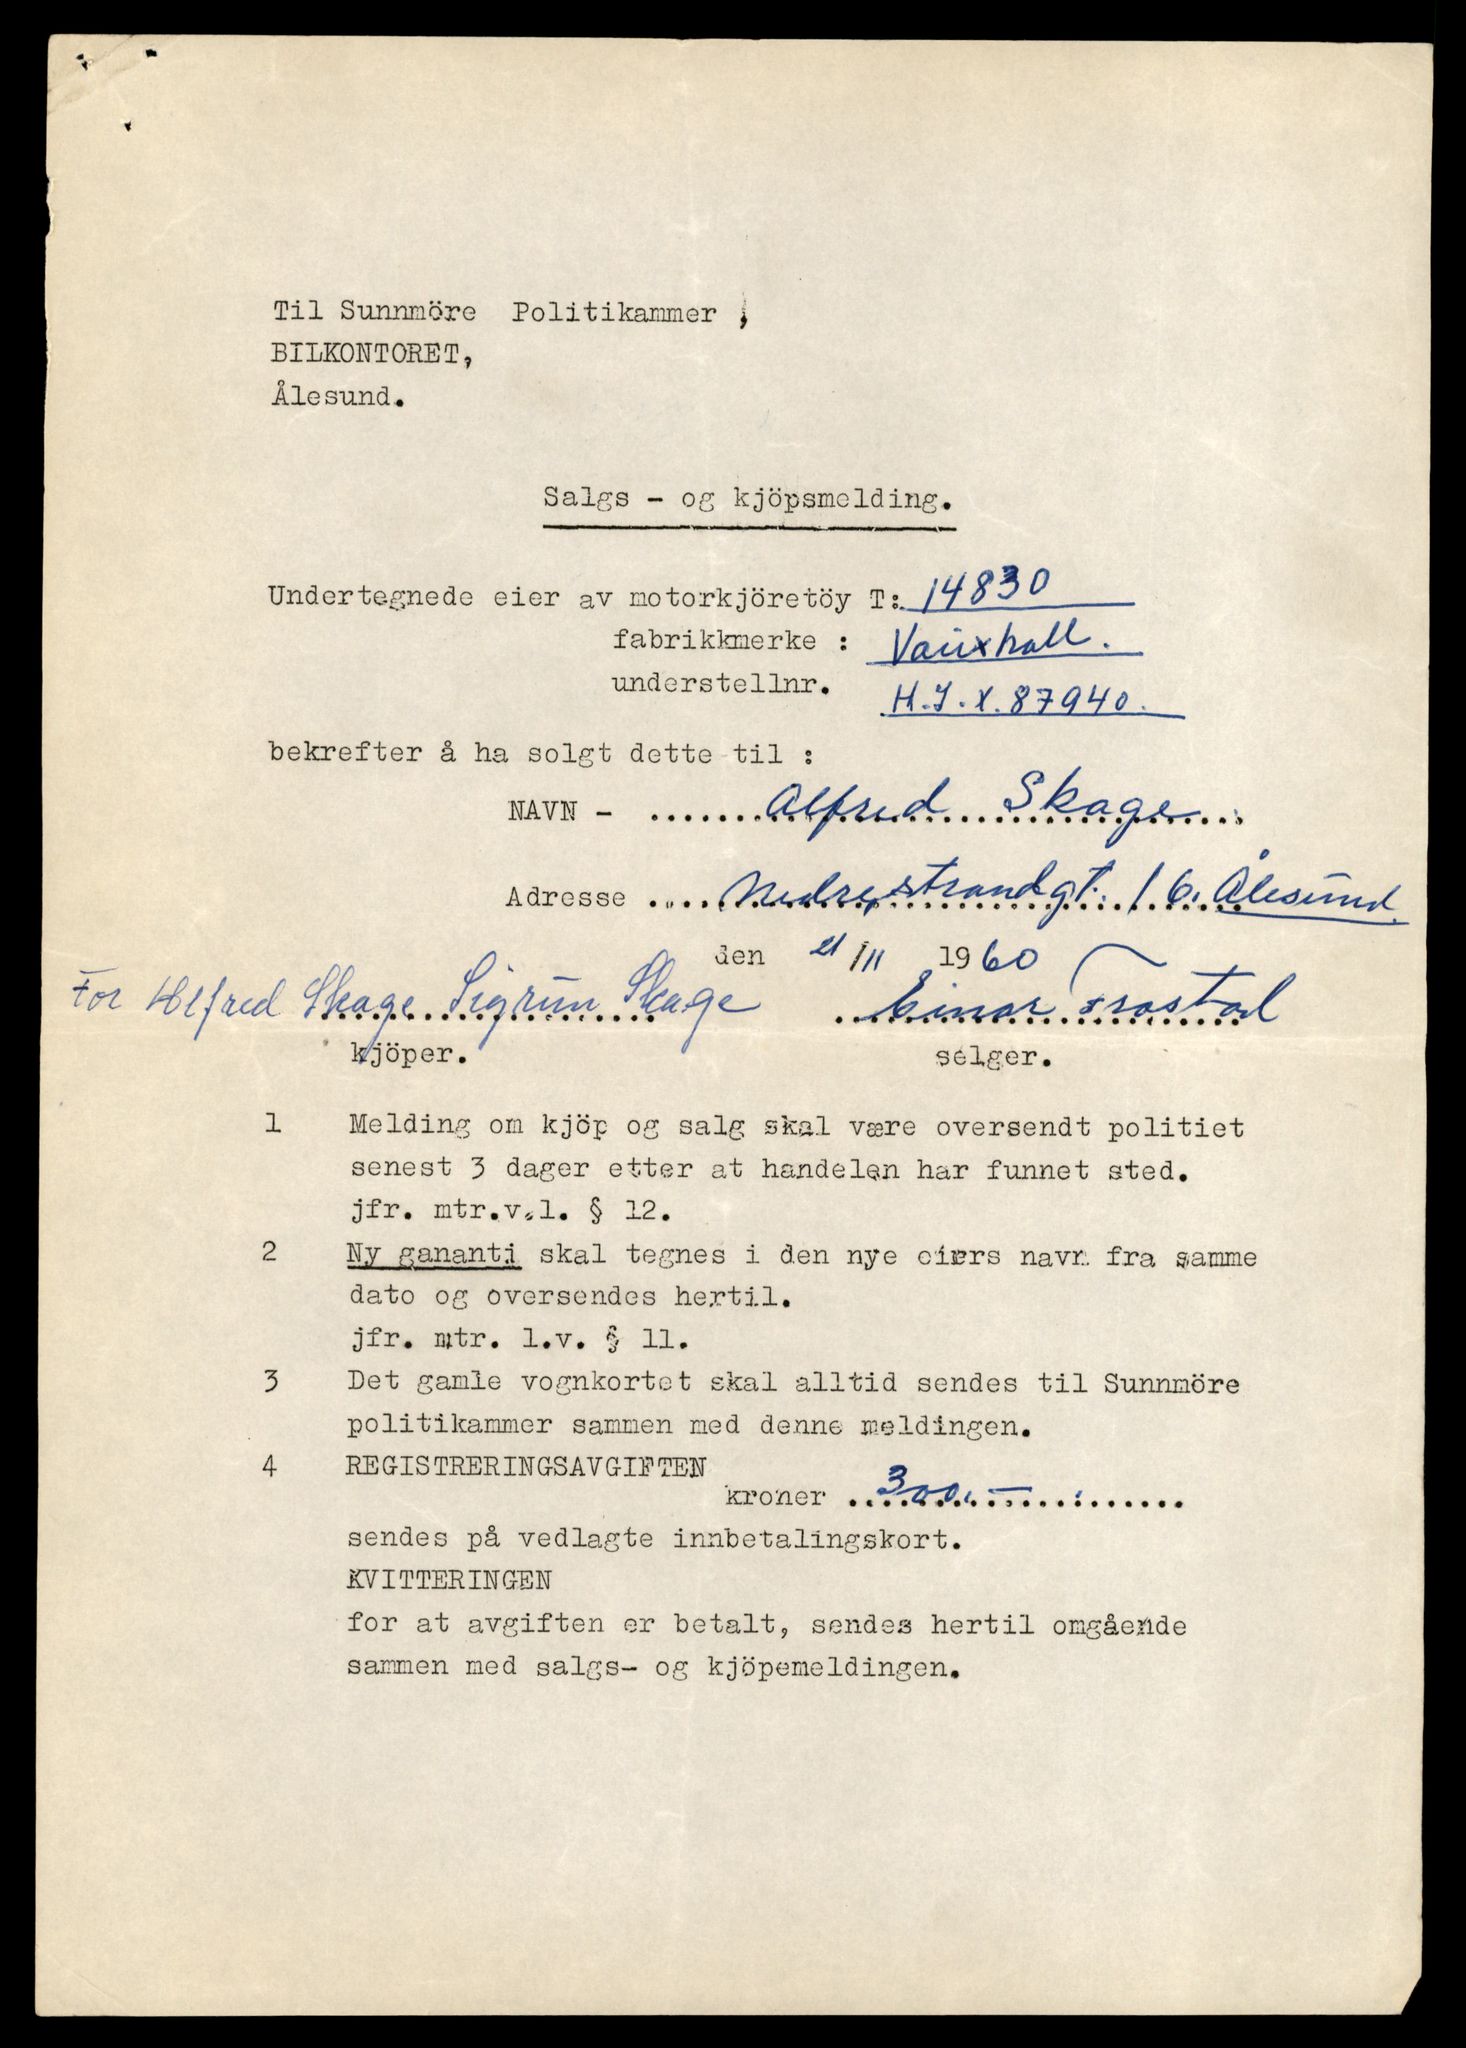 Til Sunnmöre Politikammer ,
BILKONTORET,
Ålesund.
Salgs - og kjöpsmelding.
Undertegnede eier av motorkjöretöy T: 14830
fabrikkmerke : Vauxhall.
understellnr. H.J.X. 87940.
bekrefter å ha solgt dette til :
NAVN - ....... Alfred Skage
Adresse .... Nedrestrandgt. 16. Ålesund.
den 21/11 1960
For Alfred Skage Sigrun Skage Einar Frostad
kjöper. selger.
1 Melding om kjöp og salg skal være oversendt politiet
senest 3 dager etter at handelen har funnet sted.
jfr. mtr.v.l. § 12.
2 Ny gananti skal tegnes i den nye eiers navn fra samme
dato og oversendes hertil.
jfr. mtr. l.v. § 11.
3 Det gamle vognkortet skal alltid sendes til Sunnmöre
politikammer sammen med denne meldingen.
4 REGISTRERINGSAVGIFTEN
kroner 300.-
sendes på vedlagte innbetalingskort.
KVITTERINGEN
for at avgiften er betalt, sendes hertil omgående
sammen med salgs- og kjöpemeldingen.